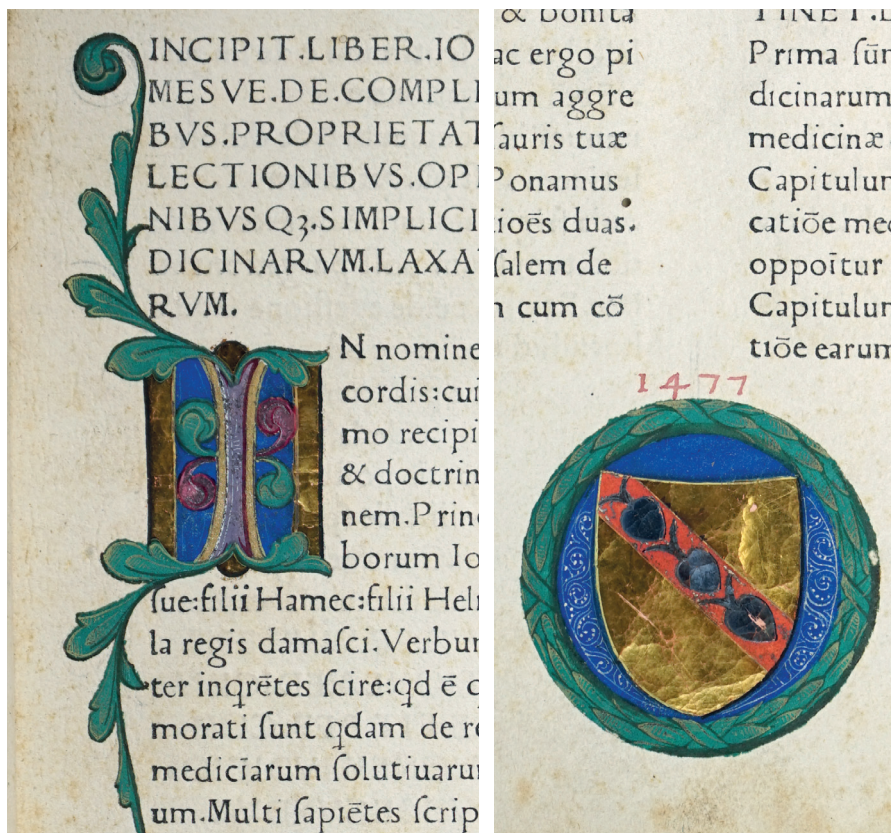 INCIPIT.LIBER.IO
MESVE.DE.COMPLE
BVS.PROPRIETAT
LECTIONIBVS.OPE
NIBVSQꝫ.SIMPLICI
DICINARVM.LAXA
RVM.
IN nomine
cordis:cui
mo recipi
& doctrin
nem.Princ
borum Io
ſue:filii Hamec:filii Heli
la regis damaſci.Verbum
ter inqrētes ſcire:qd ē
morati ſunt qdam de re
mediciarum ſolutiuarum
um.Multi ſapiētes ſcrip
& bonita
ac ergo pi
um aggre
ſauris tuæ
Ponamus
ioēs duas.
ſalem de
cum cō
TINET.L
Prima ſūm
dicinarum
medicinæ
Capitulum
catiōe med
oppoītur
Capitulum
tiōe earum
1477